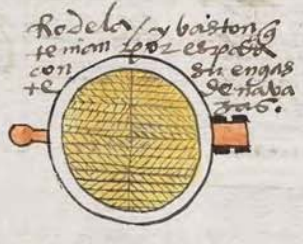 Rodela / y baston q̃
teman por espada
con su engas
te de nava
xas.